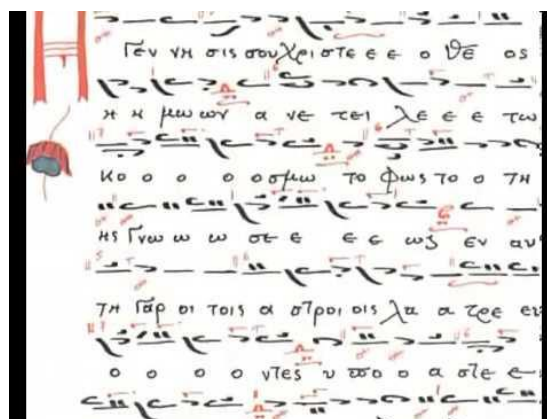 Η Γεν νη σις σου Χρι στε ε ε ο Θε ος
η η μω ων α νε τει λε ε ε τω
Κο ο ο ο ο σμω το φως το ο τη
ης Γνω ω ω σε ε ε ε ως εν αυ
τη Γαρ οι τοις α στροι οις λα α τρε ευ
ο ο ο ο ντες υ πο ο α στε ε